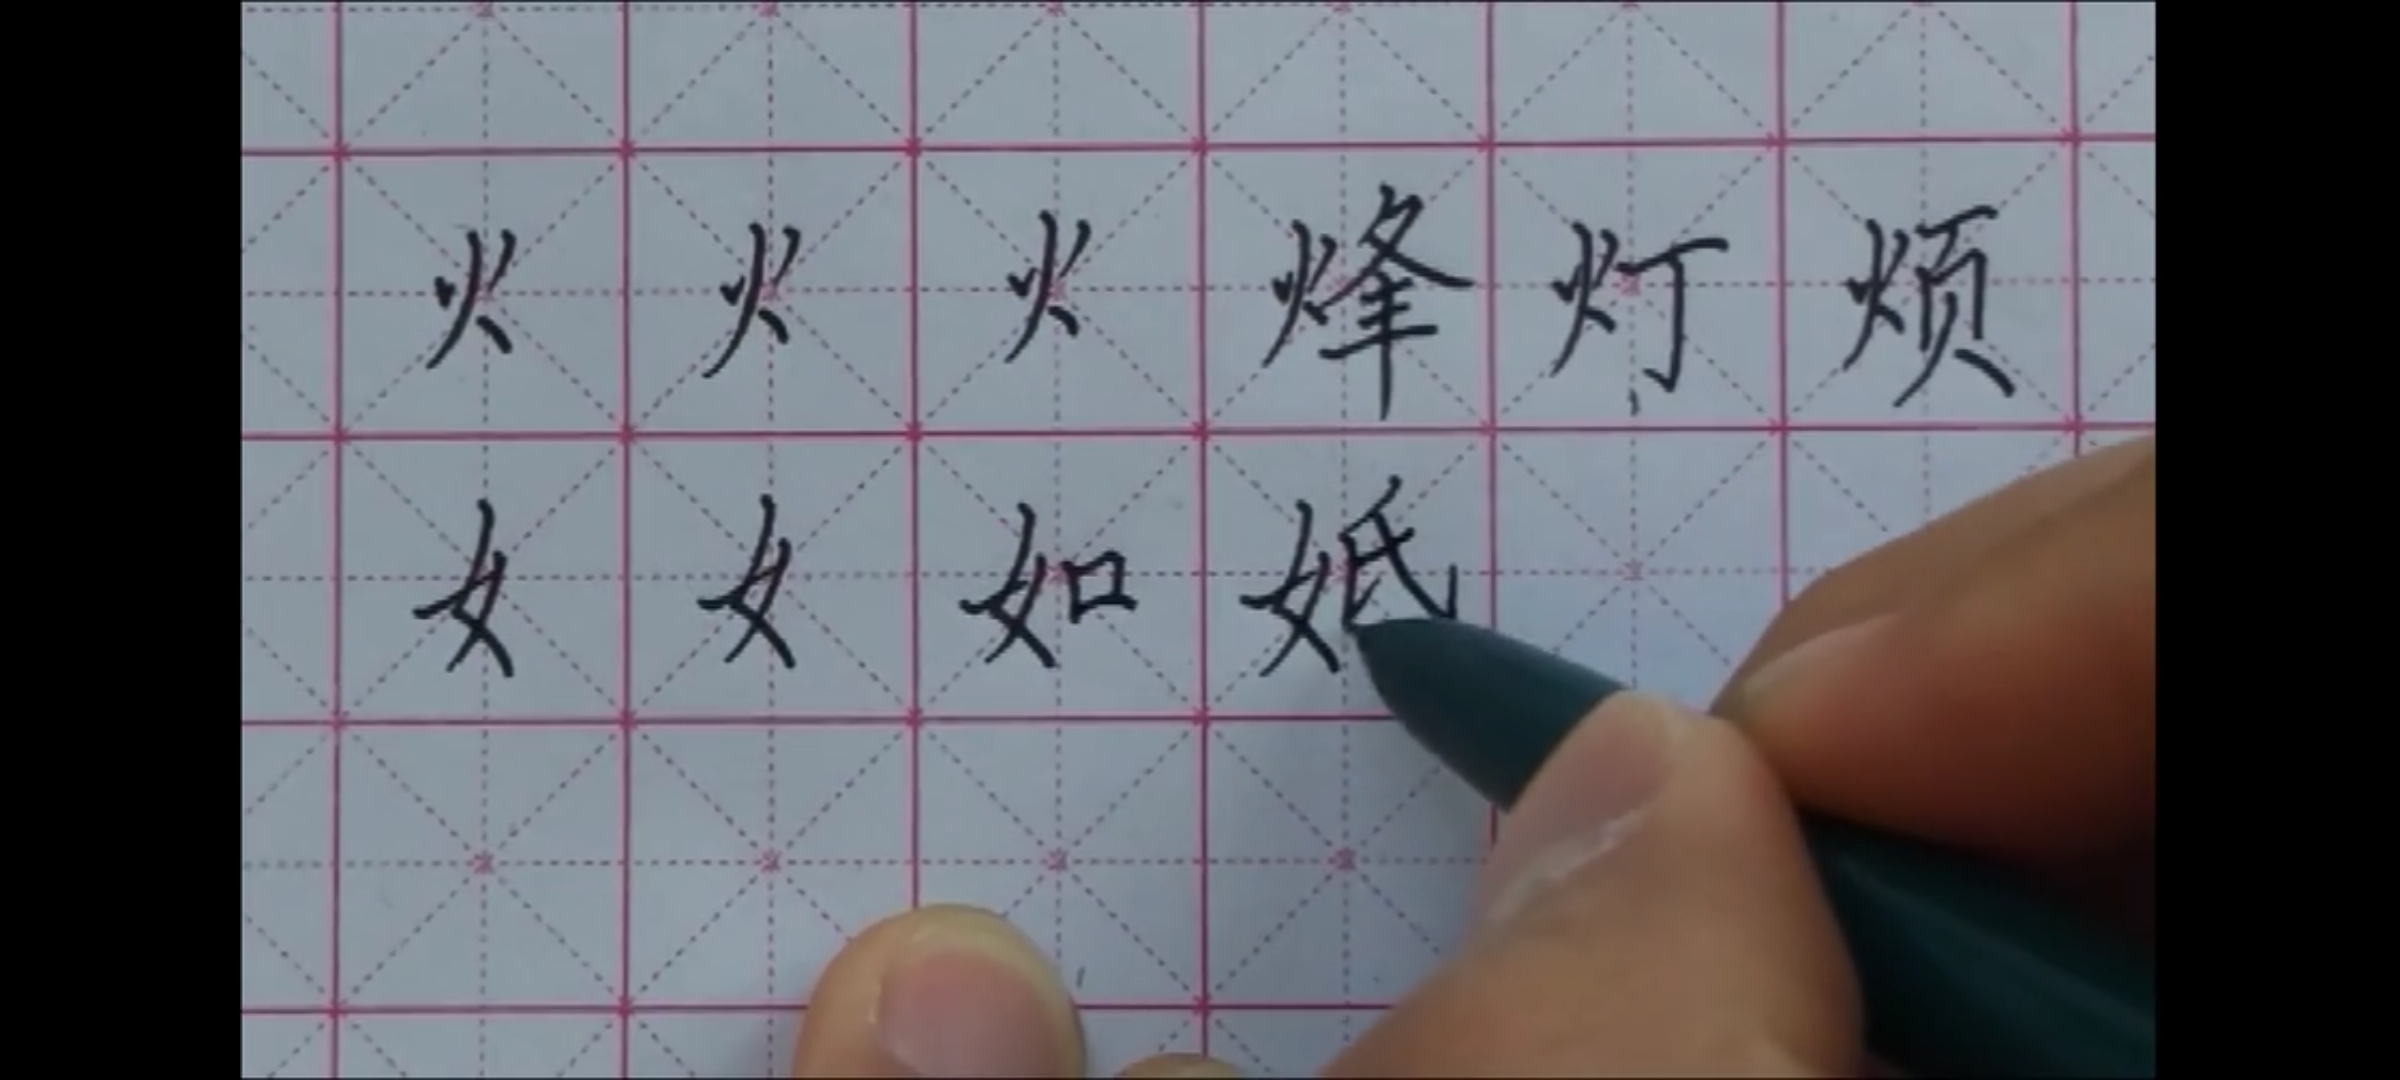 火火火烽灯烦
女女如